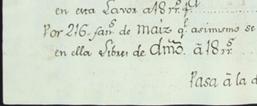 en esta Labor a 18 rr.s
Por 216. fan.s de Maiz q.e asimismo se
en ella libres de Dmõ. â 18 rr.s
Pasa â la